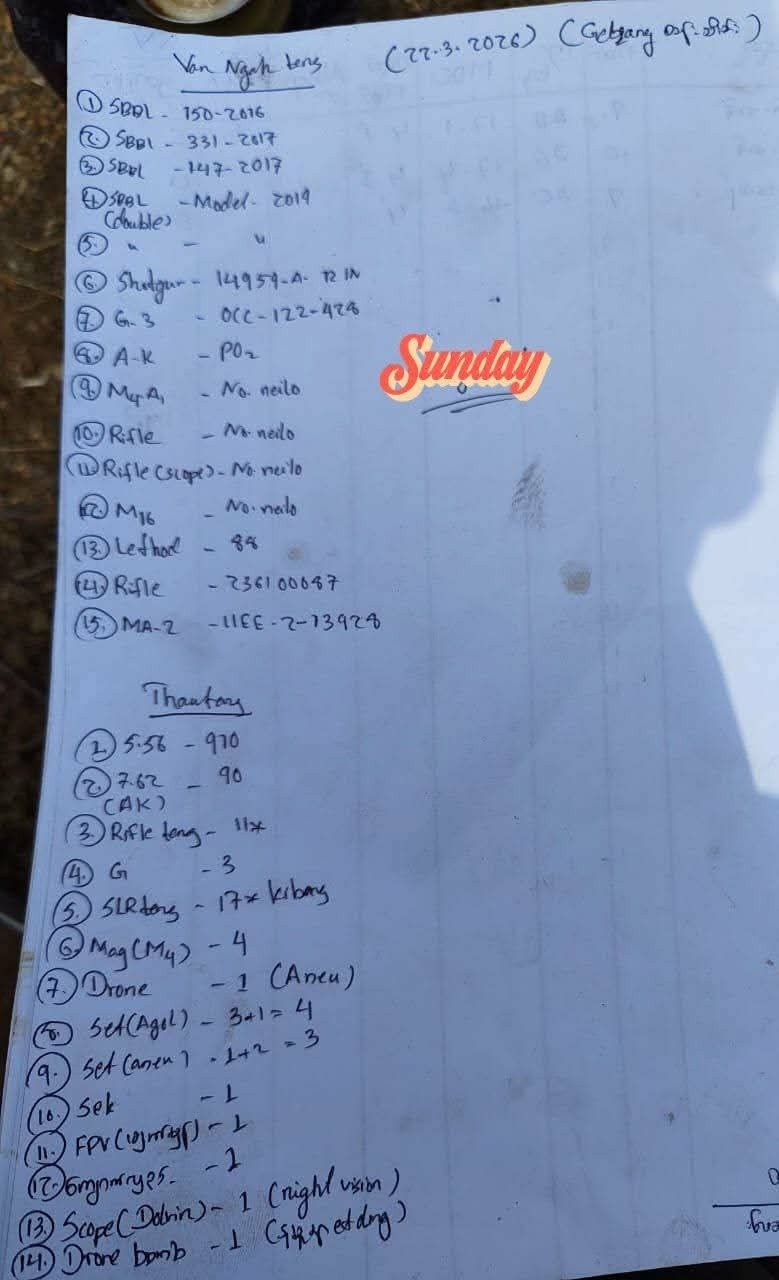 Van Ngah teng (22.3.2026)
① SBBL - 150-2016
② SBBL - 331-2017
③ SBBL - 147-2017
④ SBBL - Model - 2019
(double)
⑤ " - "
⑥ Shotgun - 14959-A-12 IN
⑦ G-3 - OCC-122-428
⑧ A-K - PO2
⑨ M4-A1 - No. neilo
Sunday
⑩ Rifle - No. neilo
⑪ Rifle (scope) - No. neilo
⑫ M16 - No. neilo
⑬ Lethod - 88
⑭ Rifle - 236100087
⑮ MA-2 - 11EE-2-13928
Thautang
① 5.56 - 970
② 7.62 - 90
(AK)
③ Rifle teng - 11x
④ G - 3
⑤ SLR teng - 17x kibang
⑥ Mag (M4) - 4
⑦ Drone - 1 (Aneu)
⑧ Set (Agol) - 3+1 = 4
⑨ Set (aneu) - 1+2 = 3
⑩ Sek - 1
⑪ FPV - 1
⑫ - 1
⑬ Scope - 1 (night vision)
⑭ Drone bomb - 1